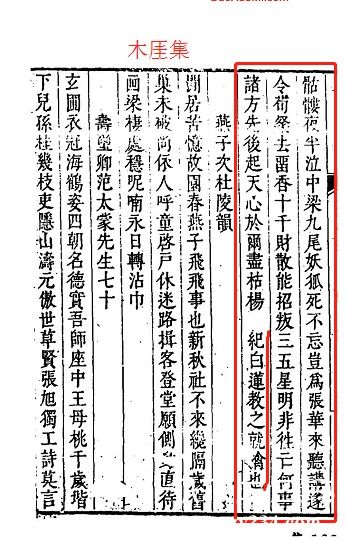 木厓集
骷髏夜半泣中梁九尾妖狐死不忘豈爲張華來聽講遂
令荀粲去留香十千財散能招叛三五星明非往亡何事
諸方先後起天心於爾盡枯楊　紀白蓮教之就禽也
燕子次杜陵韻
閒居苦憶故園春燕子飛飛事也新秋社不來縱隔歲舊
巢未破尚依人呼童啓戶休迷路揖客登堂願側直待
画梁棲處穩呢喃永日轉沾巾
壽望卿范太蒙先生七十
玄圃衣冠海鶴姿四朝名德實吾師座中王母桃千歲堦
下兒孫桂幾枝吏隱山濤元傲世草賢張旭獨工詩莫言